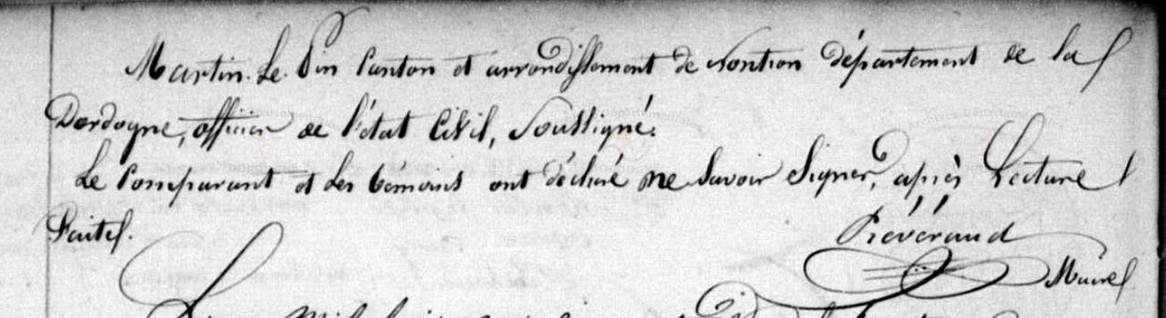 Martin. Le. Pin Canton et arrondissement de Nontron département de la
Dordogne, officier de l'état Civil, Soussigné.
Le Comparant et les témoins ont déclaré ne Savoir Signer, après Lecture
Faite.
Révéraud